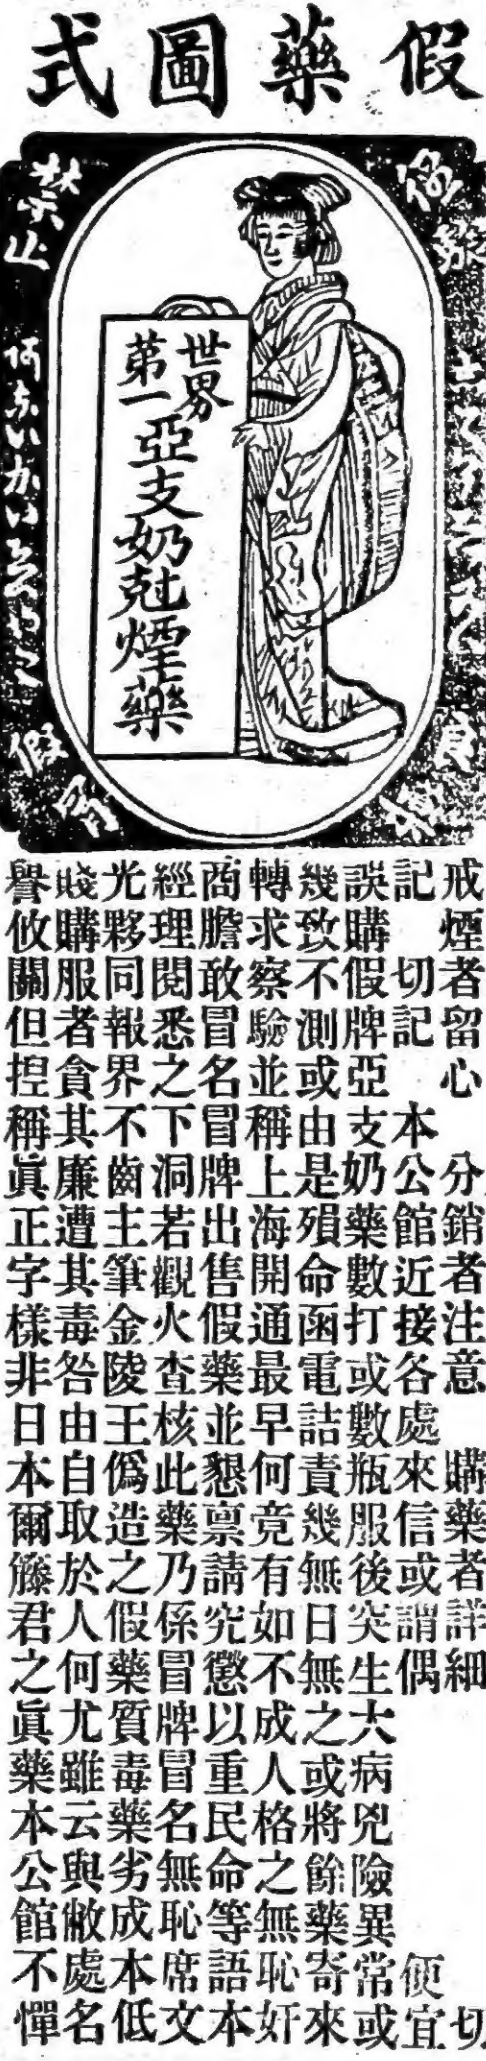 假藥圖式
禁止
世界
第一
亞支奶尅煙藥
戒煙者留心　分銷者注意　購藥者詳細　切
記　切記　本公館近接各處來信或謂偶　便宜
誤購假牌亞支奶藥數打或數瓶服後突生大病兇險異常或
幾致不測或由是殞命函電詰責幾無日無之或將餘藥寄來
轉求察驗並稱上海開通最早何竟有如不成人格之無恥奸
商膽敢冒名冒牌出售假藥並懇稟請究懲以重民命等語本
經理閱悉之下洞若觀火查核此藥乃係冒牌冒名無恥席文
光夥同報界不齒主筆金陵王僞造之假藥質毒藥劣成本低
賤購服者貪其廉遭其毒咎由自取於人何尤雖云與敝處名
譽攸關但揑稱眞正字樣非日本爾籐君之眞藥本公館不憚